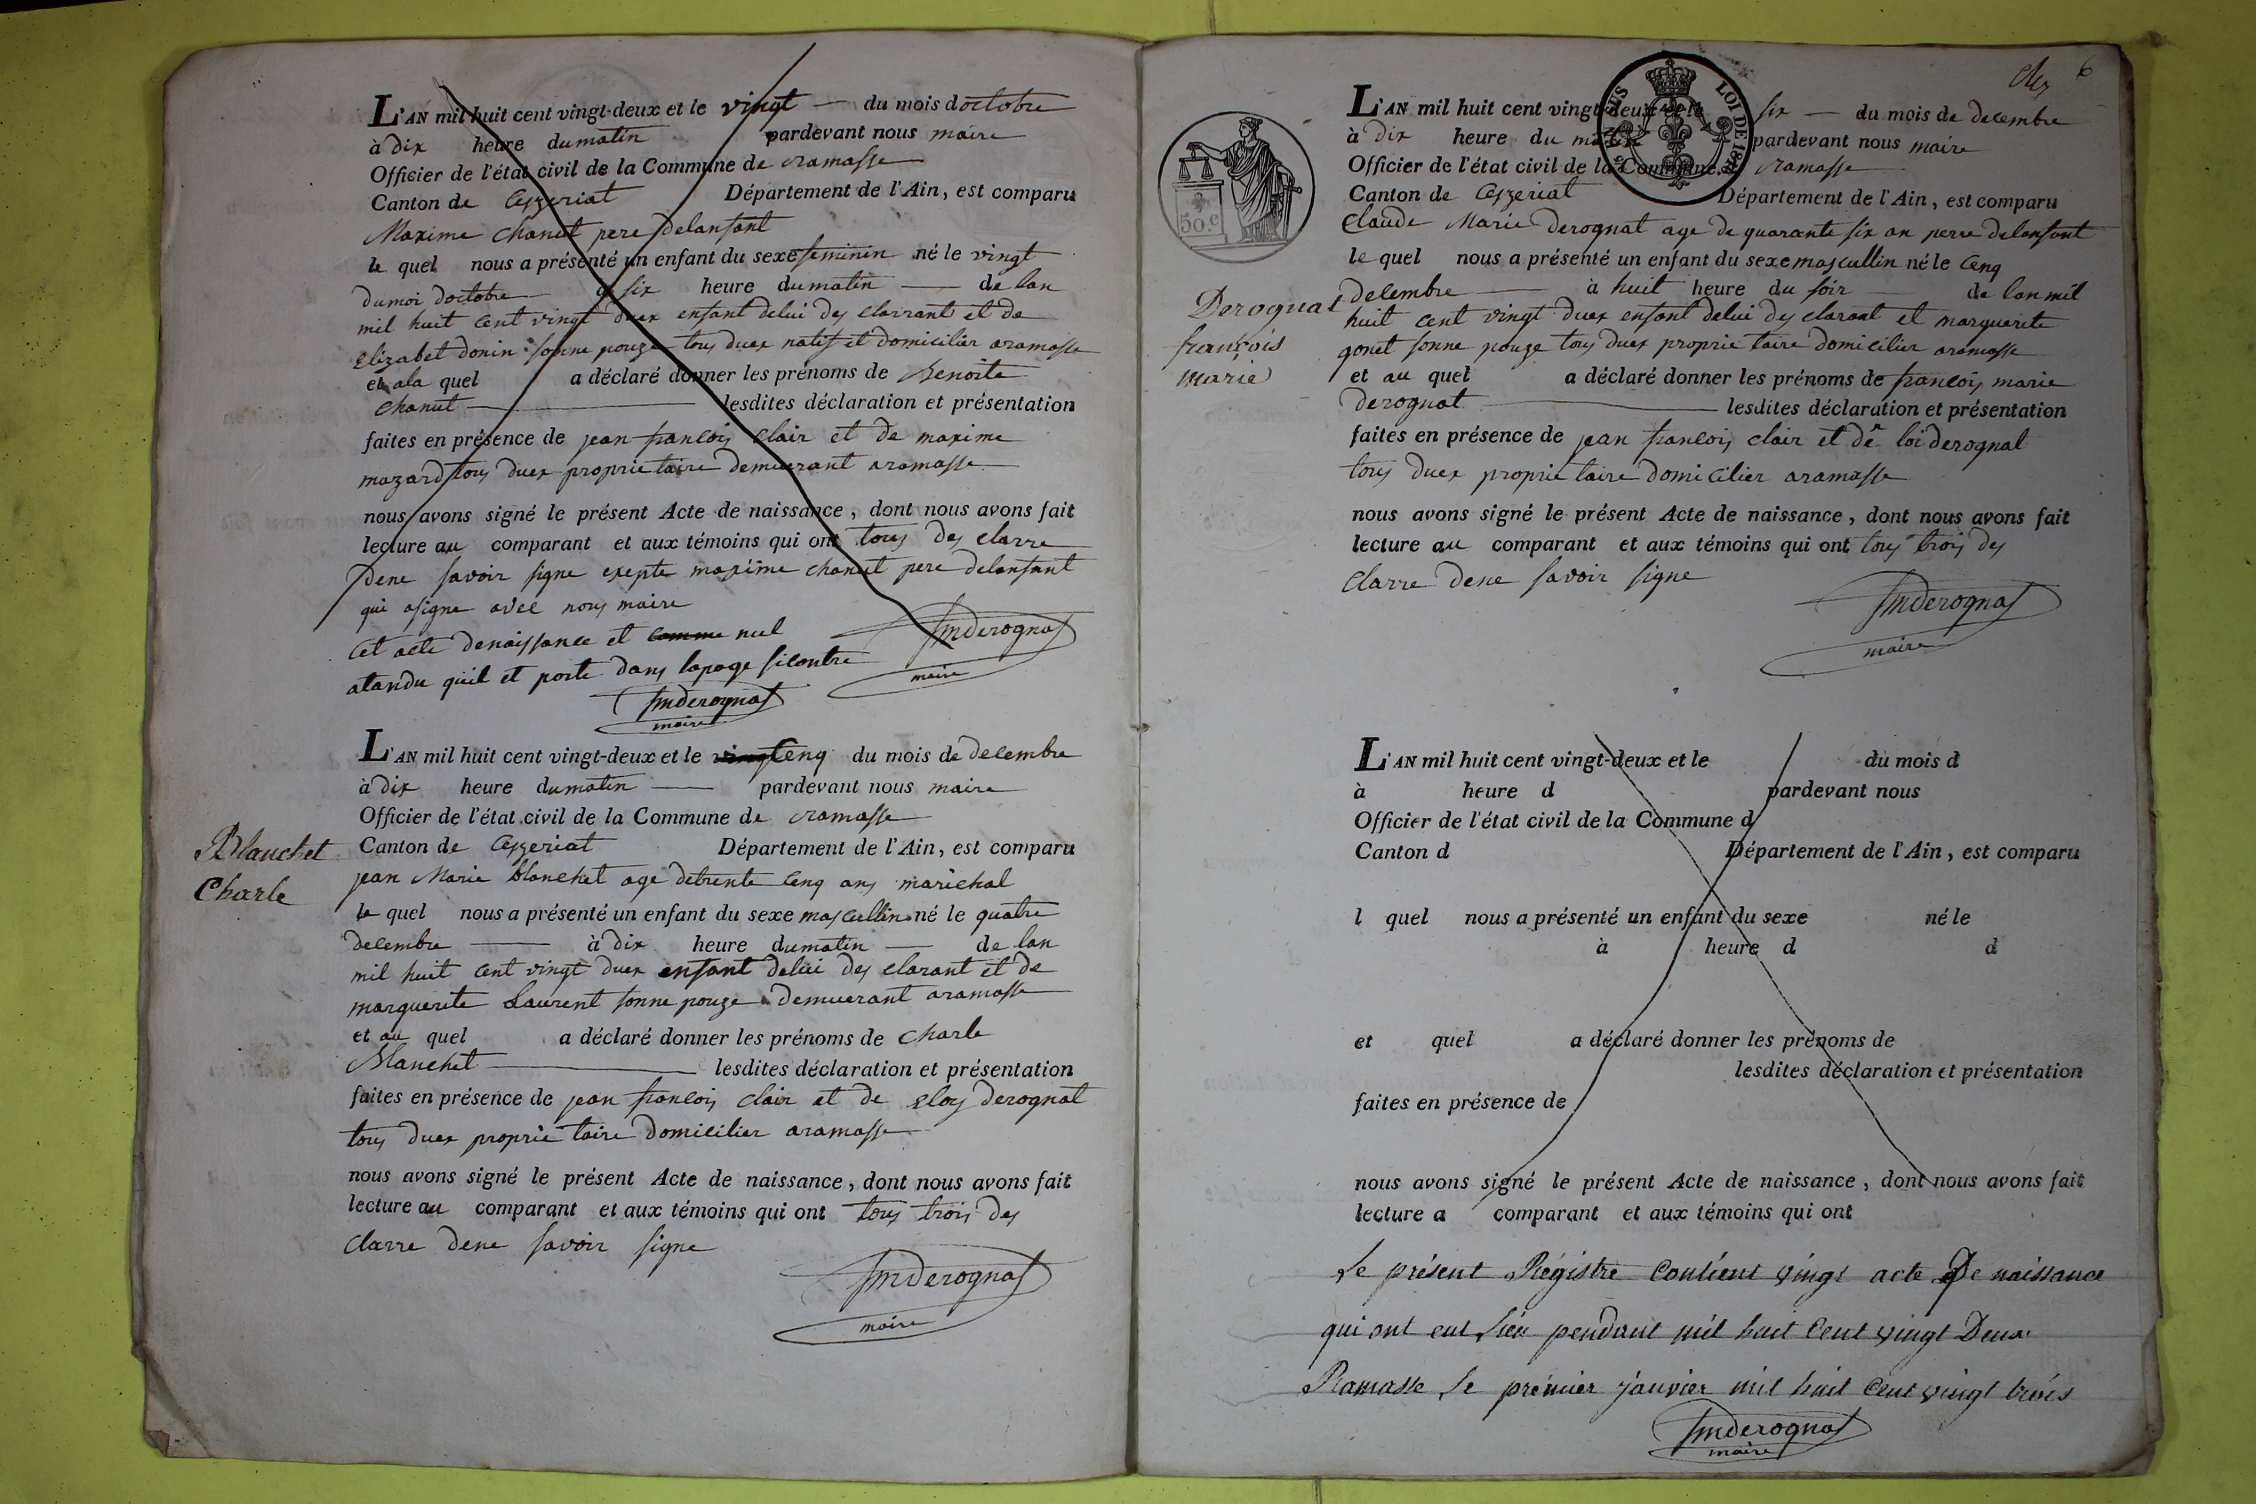 L'AN mil huit cent vingt-deux et le vingt du mois doctobre
à dix heure dumatin pardevant nous maire
Officier de l'état civil de la Commune de ramasse
Canton de Ceyzeriat Département de l'Ain, est comparu
Maxime chanut pere delanfant
le quel nous a présenté un enfant du sexe feminin né le vingt
dumoi doctobre a six heure dumatin de lan
mil huit cent vingt duex enfant delui des clarrant et de
elizabet donin sonne pouze tous duex natif et domicilier aramasse
et ala quel a déclaré donner les prénoms de Benoite
chanut lesdites déclaration et présentation
faites en présence de jean francois clair et de maxime
mazard tous duex proprietaire demeurant aramasse
nous avons signé le présent Acte de naissance, dont nous avons fait
lecture au comparant et aux témoins qui ont tous des clarre
dene savoir signe exepte maxime chanut pere delanfant
qui asigne avec nous maire
Cet acte denaissance et comme nul
atandu quil et porte dans lapage sicontre
fmderognat
maire
fmderognat
maire
L'AN mil huit cent vingt-deux et le vingt cenq du mois de decembre
à dix heure dumatin pardevant nous maire
Officier de l'état civil de la Commune de ramasse
Blanchet
Charle
Canton de Ceyzeriat Département de l'Ain, est comparu
jean Marie blanchet age detrente cenq ans marichal
le quel nous a présenté un enfant du sexe mascullin né le quatre
decembre à dix heure dumatin de lan
mil huit cent vingt duex enfant delui des clarant et de
marguerite Laurent sonne pouze demeurant aramasse
et au quel a déclaré donner les prénoms de charle
Blanchet lesdites déclaration et présentation
faites en présence de jean francois clair et de eloy derognat
tous duex proprietaire domicilier aramasse
nous avons signé le présent Acte de naissance, dont nous avons fait
lecture au comparant et aux témoins qui ont tous trois des
clarre dene savoir signe
fmderognat
maire
6
LOI DE 18
50.c
L'AN mil huit cent vingt-deux et le six du mois de decembre
à dix heure du matin pardevant nous maire
Officier de l'état civil de la Commune de ramasse
Canton de Ceyzeriat Département de l'Ain, est comparu
Claude Marie derognat age de quarante six an perre delanfant
le quel nous a présenté un enfant du sexe mascullin né le cenq
Derognat
françois
marie
decembre à huit heure du soir de lan mil
huit cent vingt duex enfant delui des clarant et marguerite
gonet sonne pouze tous duex proprietaire domicilier aramasse
et au quel a déclaré donner les prénoms de francois marie
derognat lesdites déclaration et présentation
faites en présence de jean francois clair et de loi derognat
tous duex proprietaire domicilier aramasse
nous avons signé le présent Acte de naissance, dont nous avons fait
lecture au comparant et aux témoins qui ont tous trois des
clarre dene savoir signe
fmderognat
maire
L'AN mil huit cent vingt-deux et le du mois d
à heure d pardevant nous
Officier de l'état civil de la Commune d
Canton d Département de l'Ain, est comparu
l quel nous a présenté un enfant du sexe né le
à heure d d
et quel a déclaré donner les prénoms de
lesdites déclaration et présentation
faites en présence de
nous avons signé le présent Acte de naissance, dont nous avons fait
lecture a comparant et aux témoins qui ont
Le présent Régistre contient vingt acte De naissance
qui ont eut lieu pendant mil huit Cent vingt Deux
Ramasse le prémier janvier mil huit Cent vingt trois
fmderognat
maire